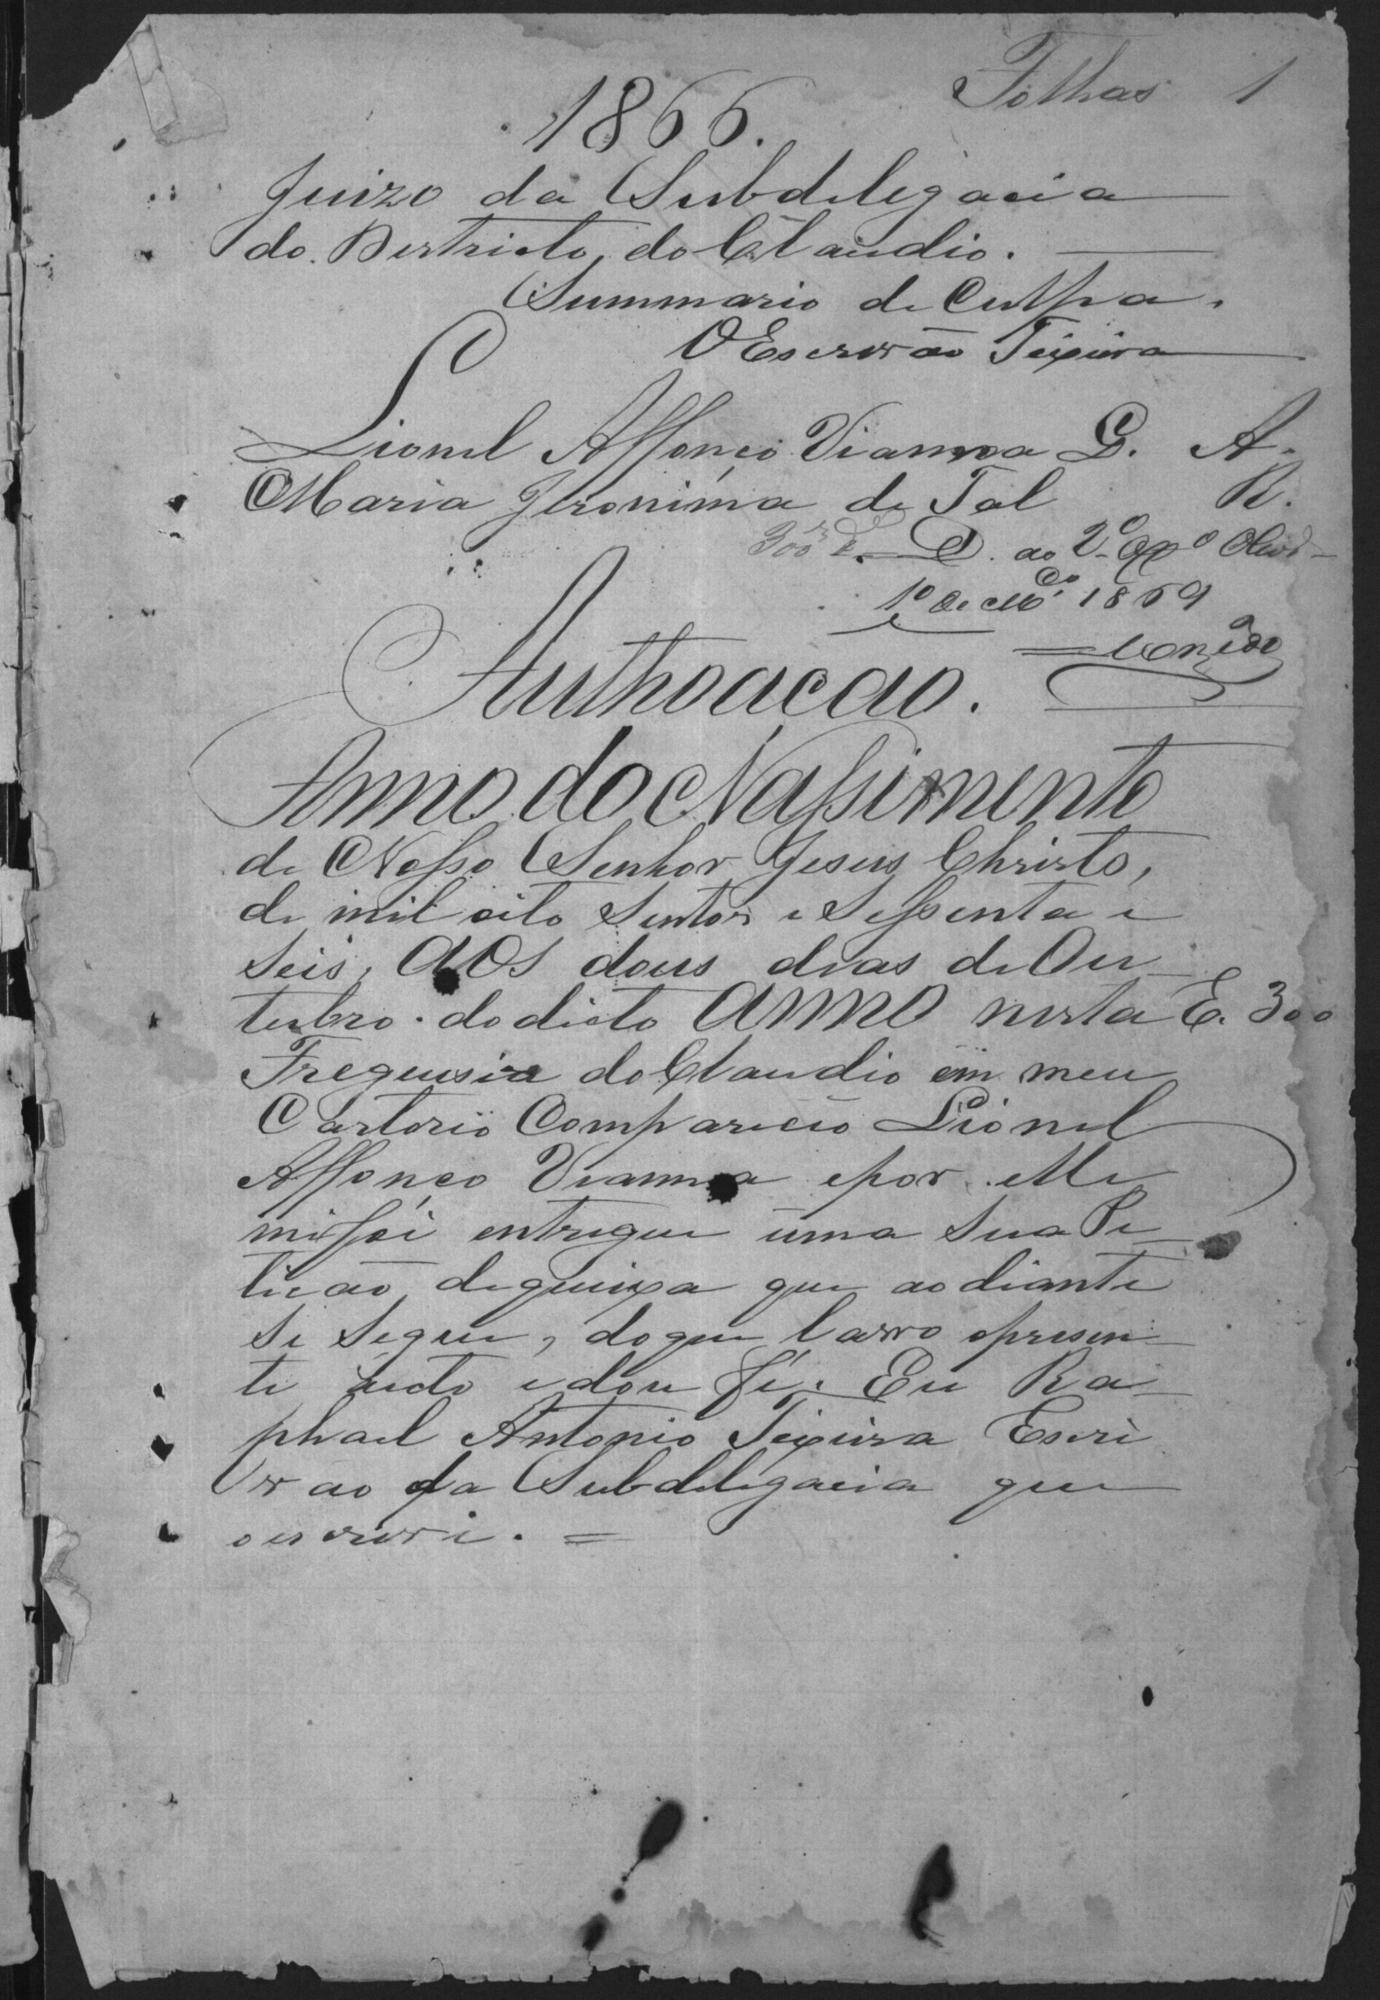 Folhas 1
1866.
Juizo da Subdelegacia
do Destricto do Claudio.
Summario de Culpa.
O Escrivão Teixeira
Lionel Affonço Vianna G. A.
Maria Jeronima de Tal R.
300 D. ao 2º
1º de 1869
Authoacão.
Anno do Nassimento
de Nosso Senhor Jesus Christo,
de mil oito sentos e sessenta e
seis, aos dous dias de Ou-
tubro do dicto anno nesta E. 300
Freguesia do Claudio em meu
Cartorio Compareceo Lionel
Affonço Vianna e por elle
mi foi entregue uma sua Pe-
ticão de queixa que ao diante
se segue, do que lavro o presen-
te auto e dou fé. Eu Ra-
phael Antonio Teixeira Escri
vão da Subdelegacia que
o escrevi. =